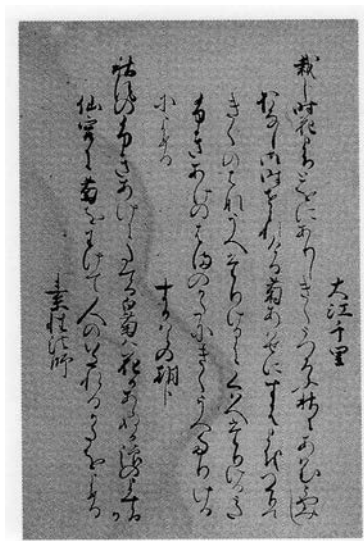 大江千里
栽し時花まちどをにありしきくうつろふ秋にあはむとやみし
おなじ御時せられける菊あはせにすはまをつくりて
きくのはなうへたりけるにくはへたりけるうた
ふきあげのはまのかたにきくうへたりける
によめる
すがはらの朝臣
秋風の吹あげにたてる白菊は花かあらぬか浪のよするか
仙宮に菊をわけて人のいたれるかたをよめる
素性法師